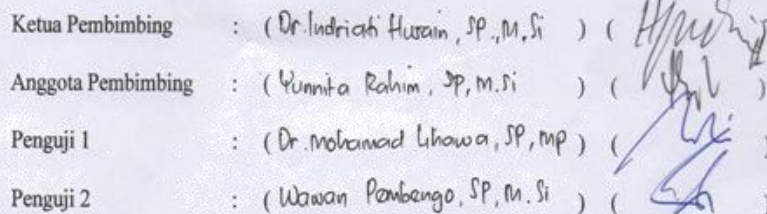 Ketua Pembimbing : ( Dr. Indriati Husain, SP., M.Si ) ( )
Anggota Pembimbing : ( Yunnita Rahim, SP, M.Si ) ( )
Penguji 1 : ( Dr. Mohamad Lihawa, SP, MP ) ( )
Penguji 2 : ( Wawan Pembengo, SP, M.Si ) ( )